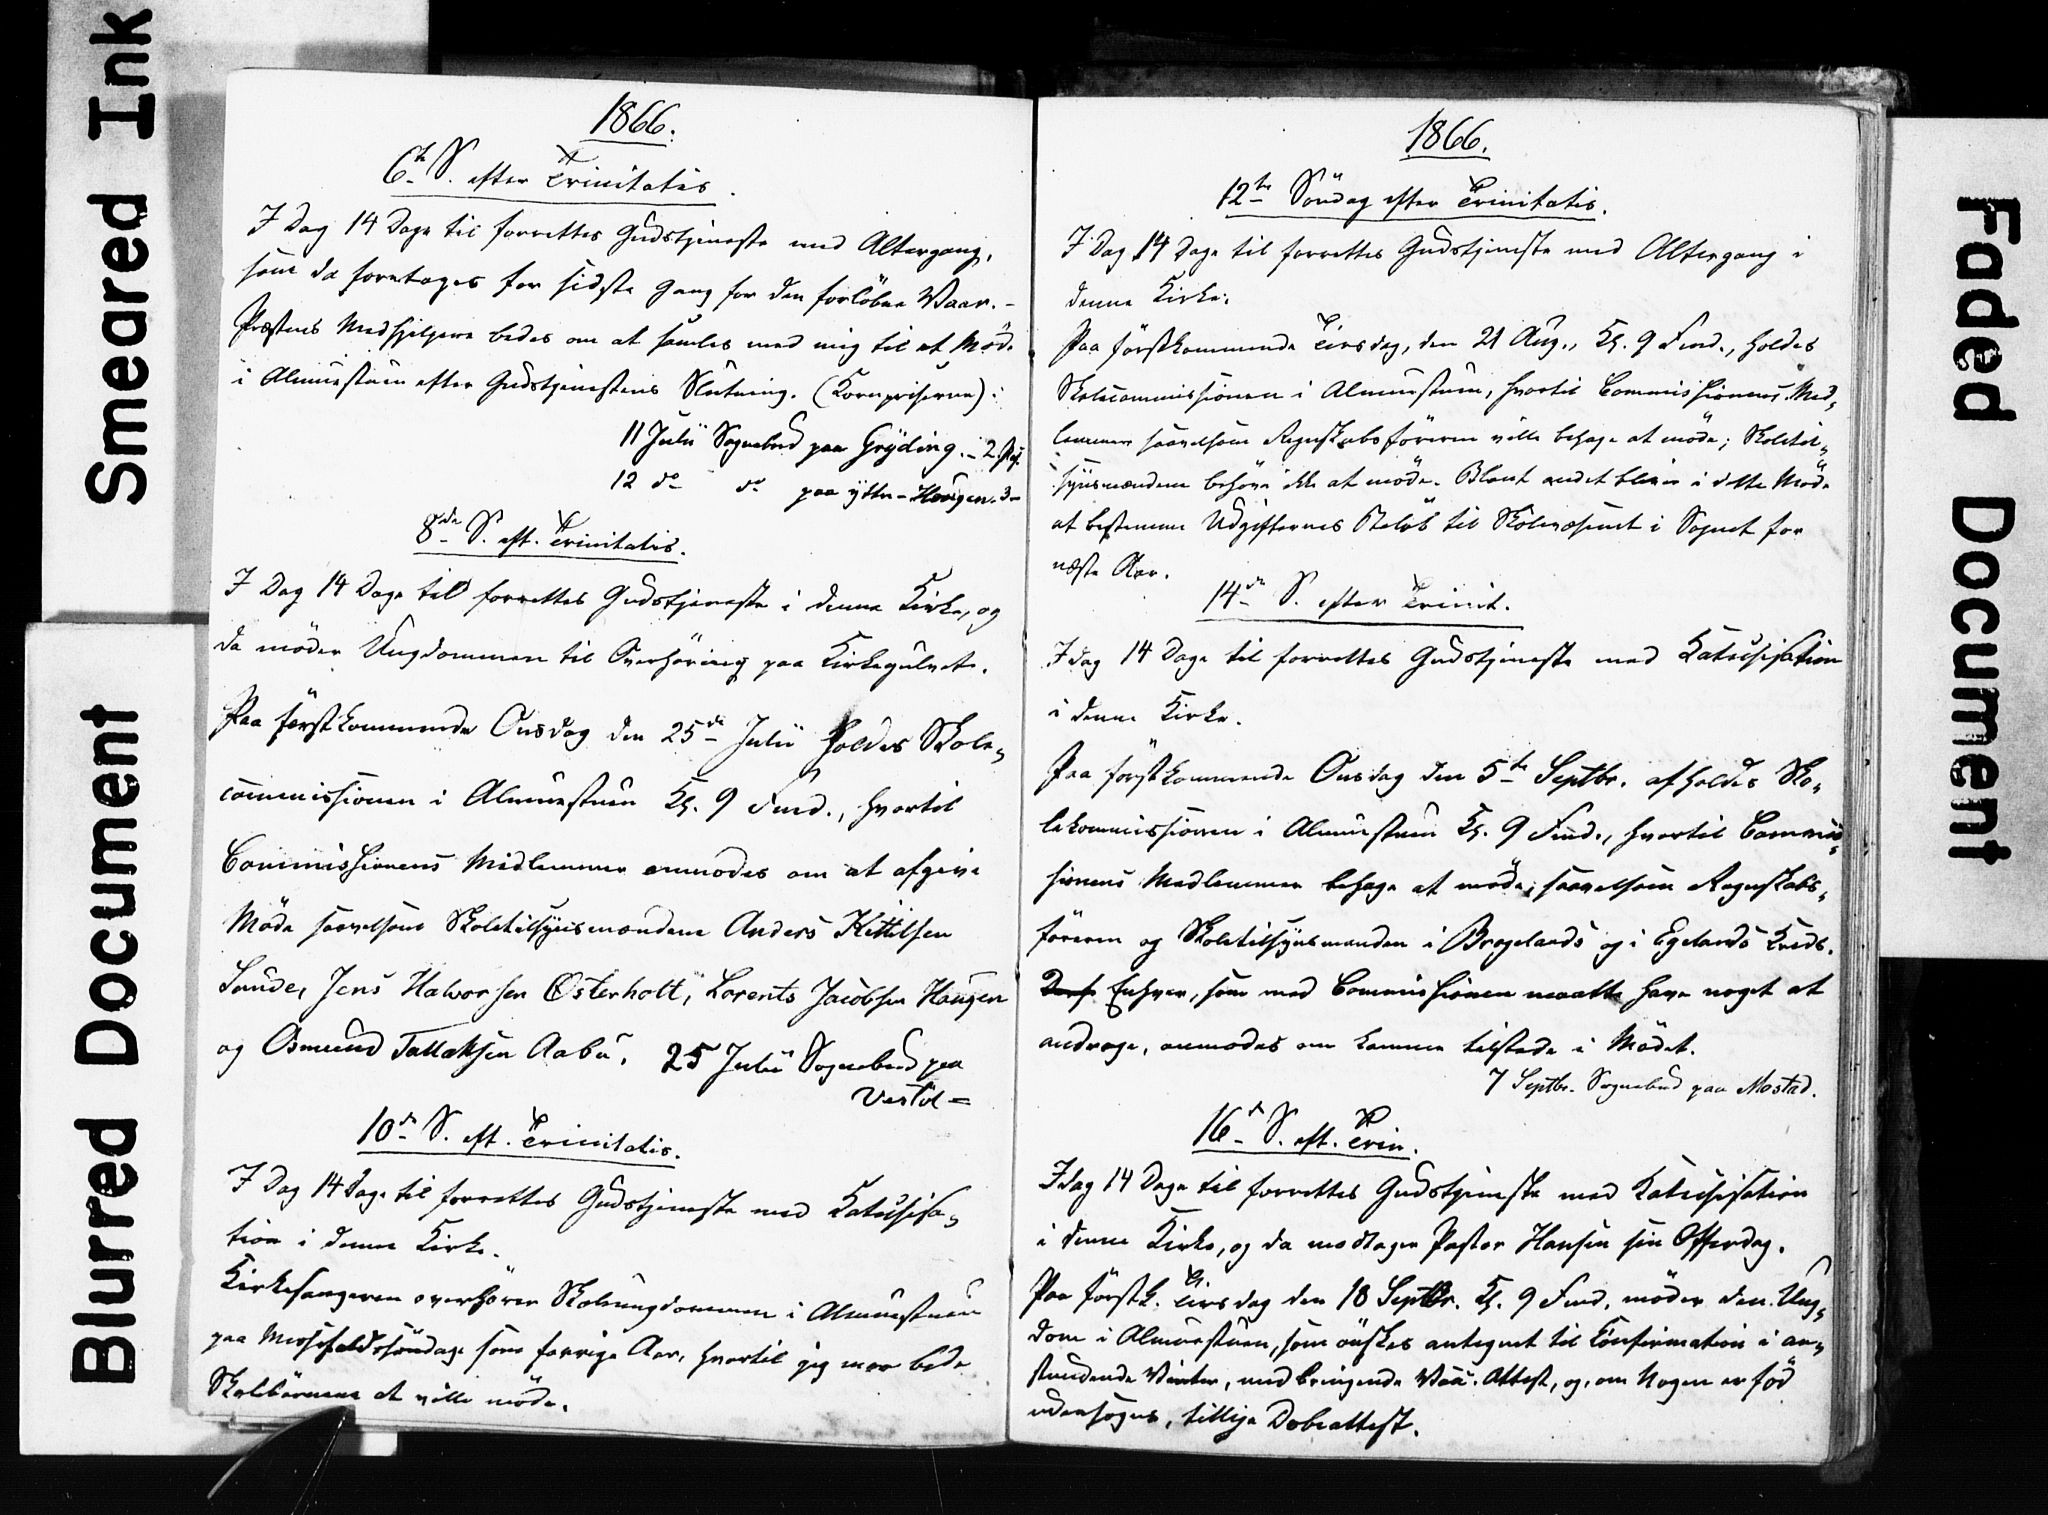 Smeared Ink
Blurred Document
Faded Document
1866.
6te S. efter Trinitatis.
I Dag 14 Dage til forrettes Gudstjeneste med Altergang,
som da foretages for sidste Gang for den forløbne Vaar. –
Præstens Medhjelpere bedes om at samles med mig til et Møde
i Almuestuen efter Gudstjenestens Slutning. (Kornpriserne):
11 Julii Sognebud paa Gryding. – 2
12 do do paa Ytter-Hougen. 3 –
8de S. eft. Trinitatis.
I Dag 14 Dage til forrettes Gudstjeneste i denne Kirke, og
da møder Ungdommen til Overhøring paa Kirkegulvet.
Paa førstkommende Onsdag den 25de Julii holdes Skole-
commissionen i Almuestuen Kl. 9 Fmd., hvortil
Commissionens Medlemmer anmodes om at afgive
Møde saavelsom Skoletilsynsmændene Anders Kittilsen
Sunde, Jens Halvorsen Østerholt, Lorents Jacobsen Hougen
og Osmund Tallaksen Aabø. 25 Julii Sognebud paa
Vestøl =
10de S. eft. Trinitatis.
I Dag 14 Dage til forrettes Gudstjeneste med Katechisa-
tion i denne Kirke.
Kirkesangeren overhører Skoleungdommen i Almuestuen
paa Messefaldssøndage som forrige Aar, hvortil jeg maa bede
Skolebørnene at ville møde.
1866.
12te Søndag efter Trinitatis.
I Dag 14 Dage til forrettes Gudstjeneste med Altergang i
denne Kirke.
Paa førstkommende Tirsdag, den 21 Aug., Kl. 9 Fmd., holdes
Skolecommissionen i Almuestuen, hvortil Commissionens Med-
lemmer saavelsom Regnskabsføreren ville behage at møde; Skoletil-
synsmændene behøve ikke at møde. Blant andet bliver i dette Møde
at bestemme Udgifternes Beløb til Skolevæsenet i Sognet for
næste Aar.
14de S. efter Trinit.
I dag 14 Dage til forrettes Gudstjeneste med Katechisation
i denne Kirke.
Paa førstkommende Onsdag den 5te Septbr. afholdes Sko-
lekommissionen i Almuestuen Kl. 9 Fmd., hvortil Commis-
sionens Medlemmer behage at møde, saavelsom Regnskabs-
føreren og Skoletilsynsmanden i Brogelands og i Egelands Kreds.
Enhver, som med Commissionen maatte have noget at
andrage, anmodes om komme tilstede i Mødet.
7 Septbr. Sognebud paa Mostad.
16de S. eft. Trin.
I dag 14 Dage til forrettes Gudstjeneste med Katechisation
i denne Kirke, og da modtager Pastor Hansen sin Offerdag.
Paa førstk. Tirsdag den 18 Septbr. Kl. 9 Fmd. møder den Ung-
dom i Almuestuen, som ønskes antegnet til Confirmation i an-
stundende Vinter, medbringende Vac. Attest, og, om Nogen er fød
udensogns, tillige Døbeattest.